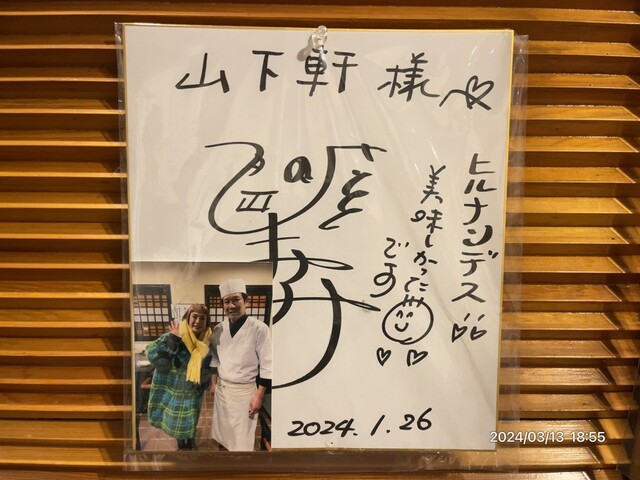 山下軒 様
ヒルナンデス!!
美味しかった!!!
です
2024.1.26
2024/03/13 18:55